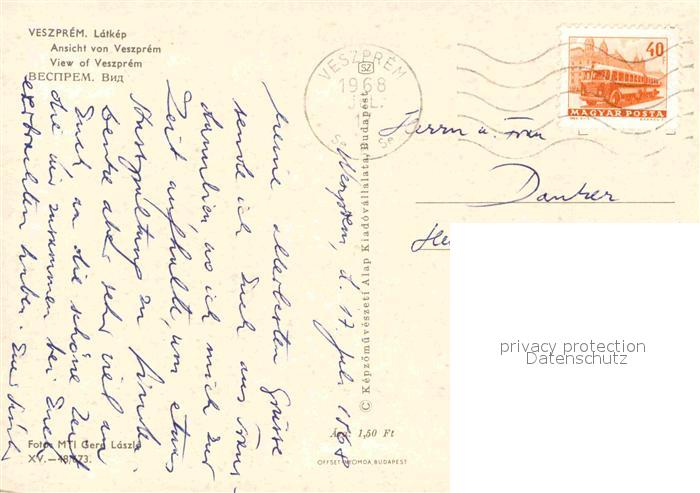 VESZPRÉM. Látkép
Ansicht von Veszprém
View of Veszprém
ВЕСПРЕМ. Вид
VESZPRÉM
SZ
1968
40 F
MAGYAR POSTA
Herrn u. Frau
Danker
privacy protection
Datenschutz
© Képzőművészeti Alap Kiadóvállalata, Budapest
Veszprém, d. 17. Juli 1968
Meine allerbesten Grüsse
sende ich Euch aus
wo ich mich zur
Zeit aufhalte, um etwas
zu finden.
denke aber sehr viel an
Euch, an die schöne Zeit
die wir zusammen bei Euch
haben. Euer
Ára: 1,50 Ft
OFFSET-NYOMDA, BUDAPEST
Foto: MTI Gerő László
XV.—48/673.